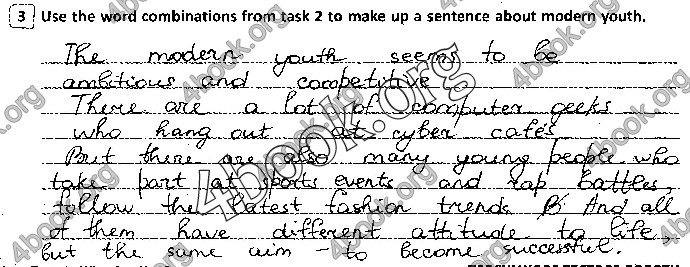 3 Use the word combinations from task 2 to make up a sentence about modern youth.
The modern youth seems to be
ambitious and competitive
There are a lots of computer geeks
who hang out at cyber cafés
But there are also many young people who
take part at sports events and rap battles,
follow the latest fashion trends And all
of them have different attitude to life,
but the same aim - to become successful.
4book.org